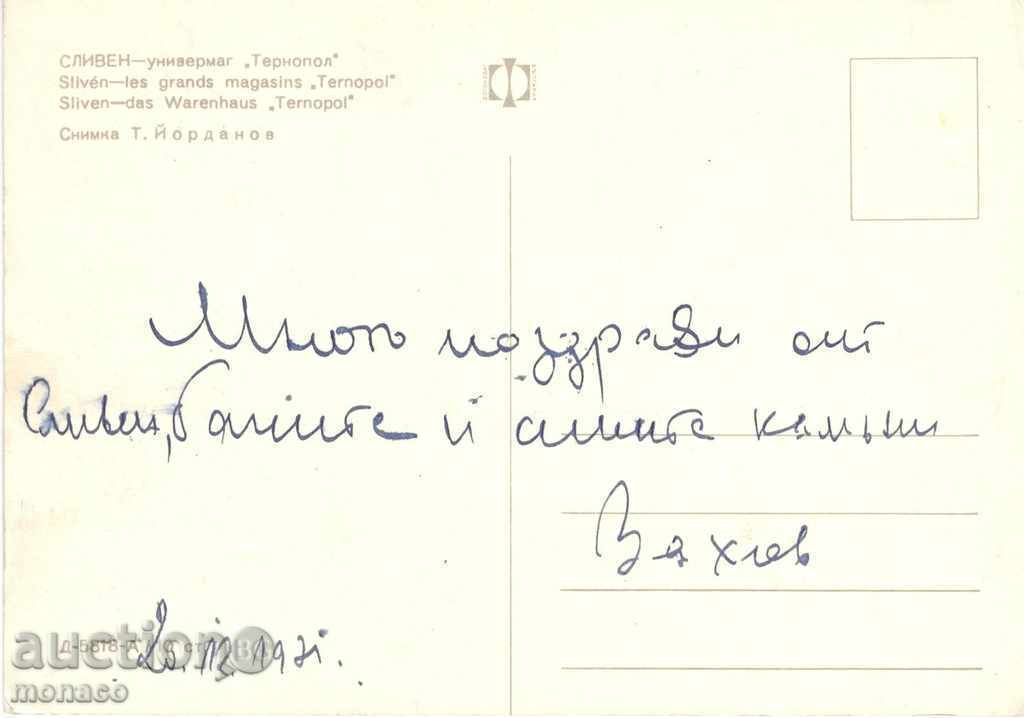 СЛИВЕН—универмаг „Тернопол"
Slivén—les grands magasins „Ternopol"
Sliven—das Warenhaus „Ternopol"
Снимка Т. Йорданов
Много поздрави от
Сливен, баните и сините камъни
Вълков
Д-5818-А
1971.
auction
monaco